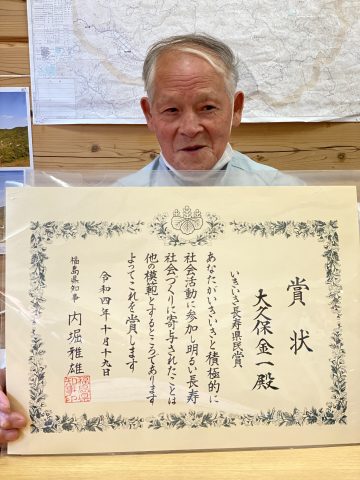 賞状
いきいき長寿県民賞
大久保金一殿
あなたがいきいきと積極的に
社会活動に参加し明るい長寿
社会づくりに寄与されたことは
他の模範とするところであります
よってこれを賞します
令和四年十月十九日
福島県知事 内堀雅雄